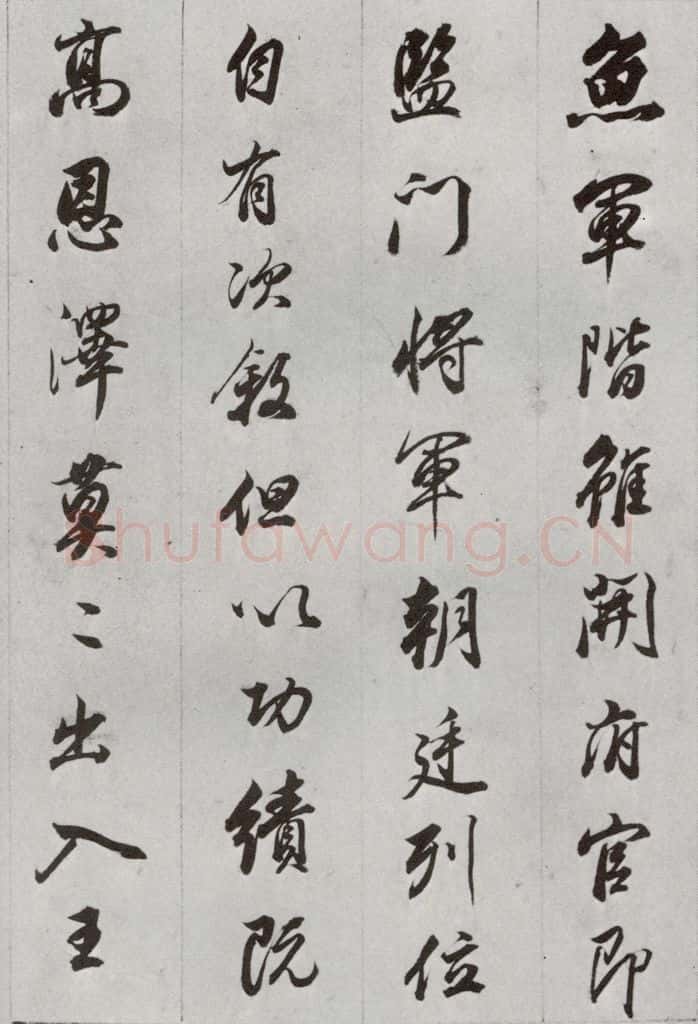 魚軍階雖開府官即
監門將軍朝廷列位
自有次敘但以功績既
高恩澤莫二出入王
Shufawang.CN